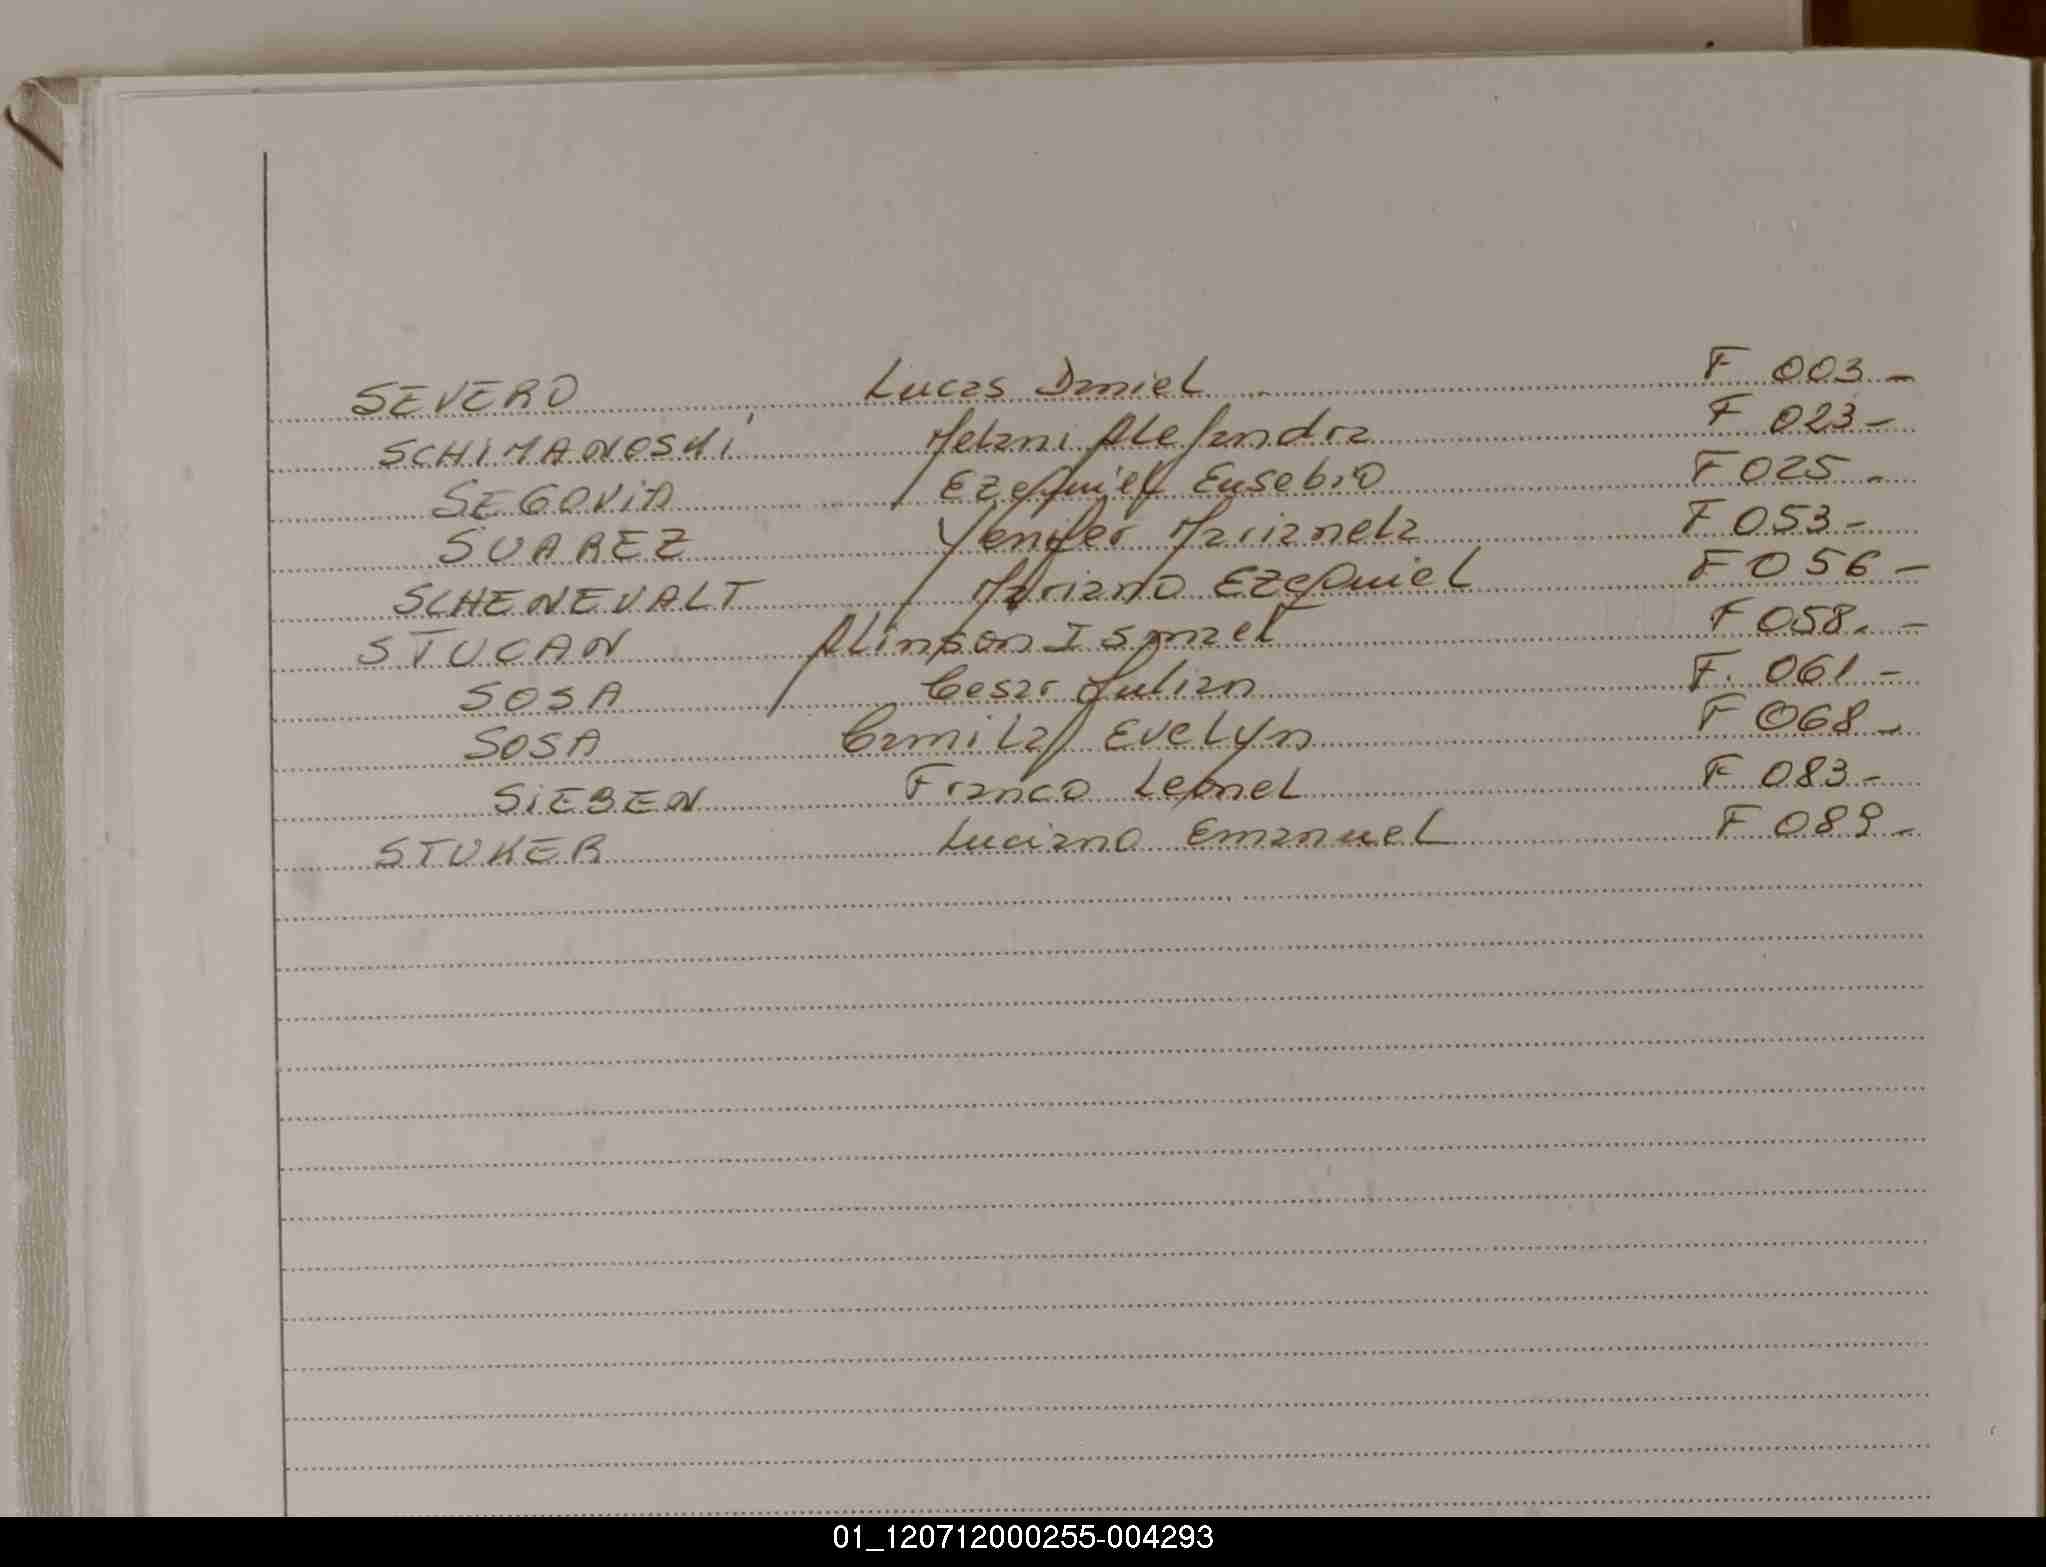 SEVERO Lucas Daniel F 003-
SCHIMANOSKI Melani Alejandra F 023-
SEGOVIA Ezequiel Eusebio F 025-
SUAREZ Yenifer Marianela F 053-
SCHENEVALT Mariano Ezequiel F 056-
STUCAN Alinson Ismael F 058.-
SOSA Cesar Julian F. 061-
SOSA Camila Evelyn F 068-
SIEBEN Franco Leonel F 083-
STUKER Luciano Emanuel F 089-
01_120712000255-004293